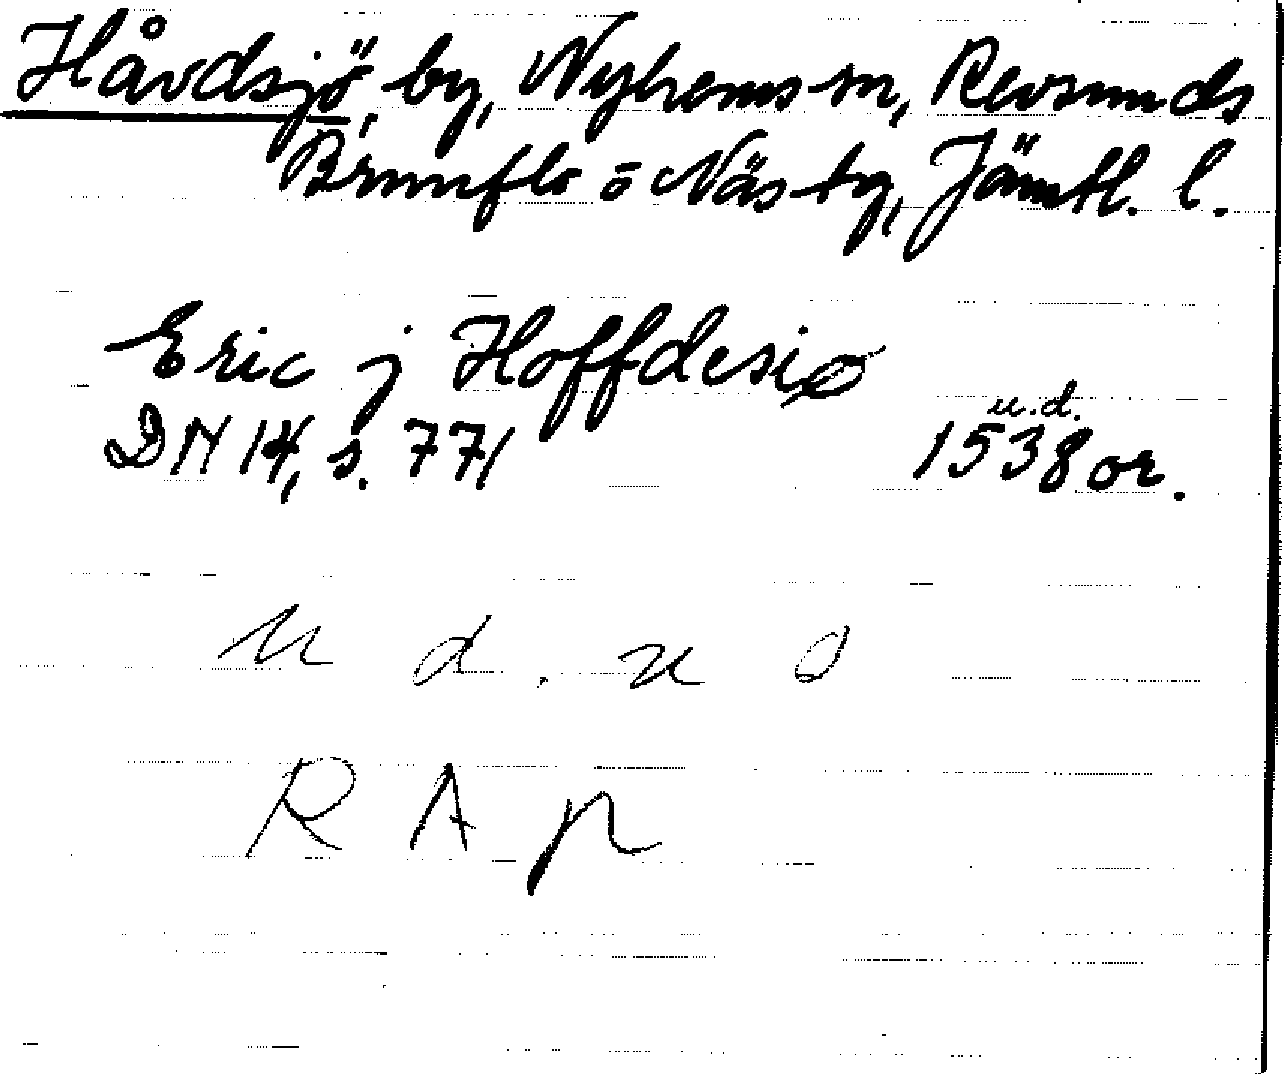 Håvdsjö, by, Nyhems sn, Revsunds
Brunflo o Näs tg, Jämtl. l.
Eric j Hoffdesiø
u.d.
DN 14, s. 771 1538 or.
u d. u o
R A p